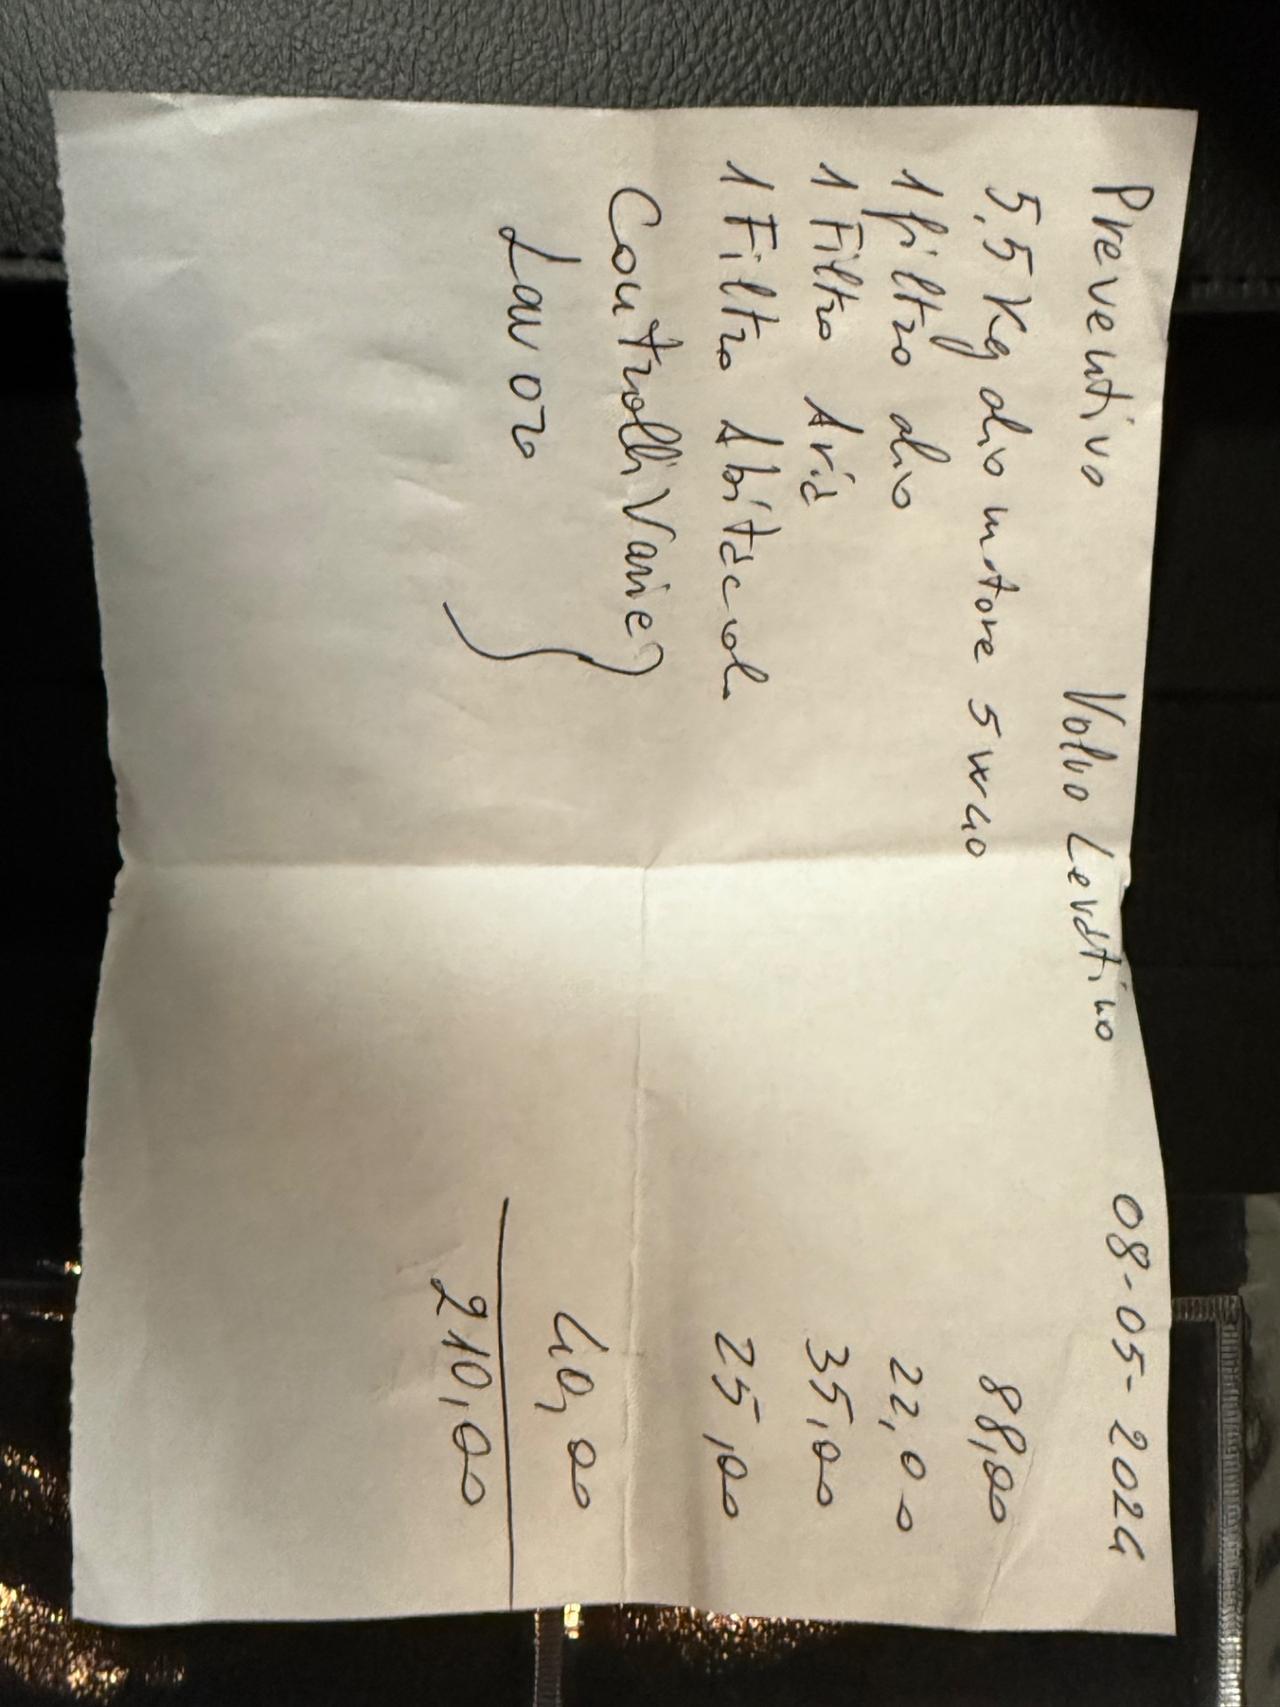 Preventivo Volvo Levatino 08-05-2024
5,5 Kg olio motore 5w40 88,00
1 filtro olio 22,00
1 Filtro Aria 35,00
1 Filtro Abitacolo 25,00
Controlli Varie
Lavoro 40,00
210,00